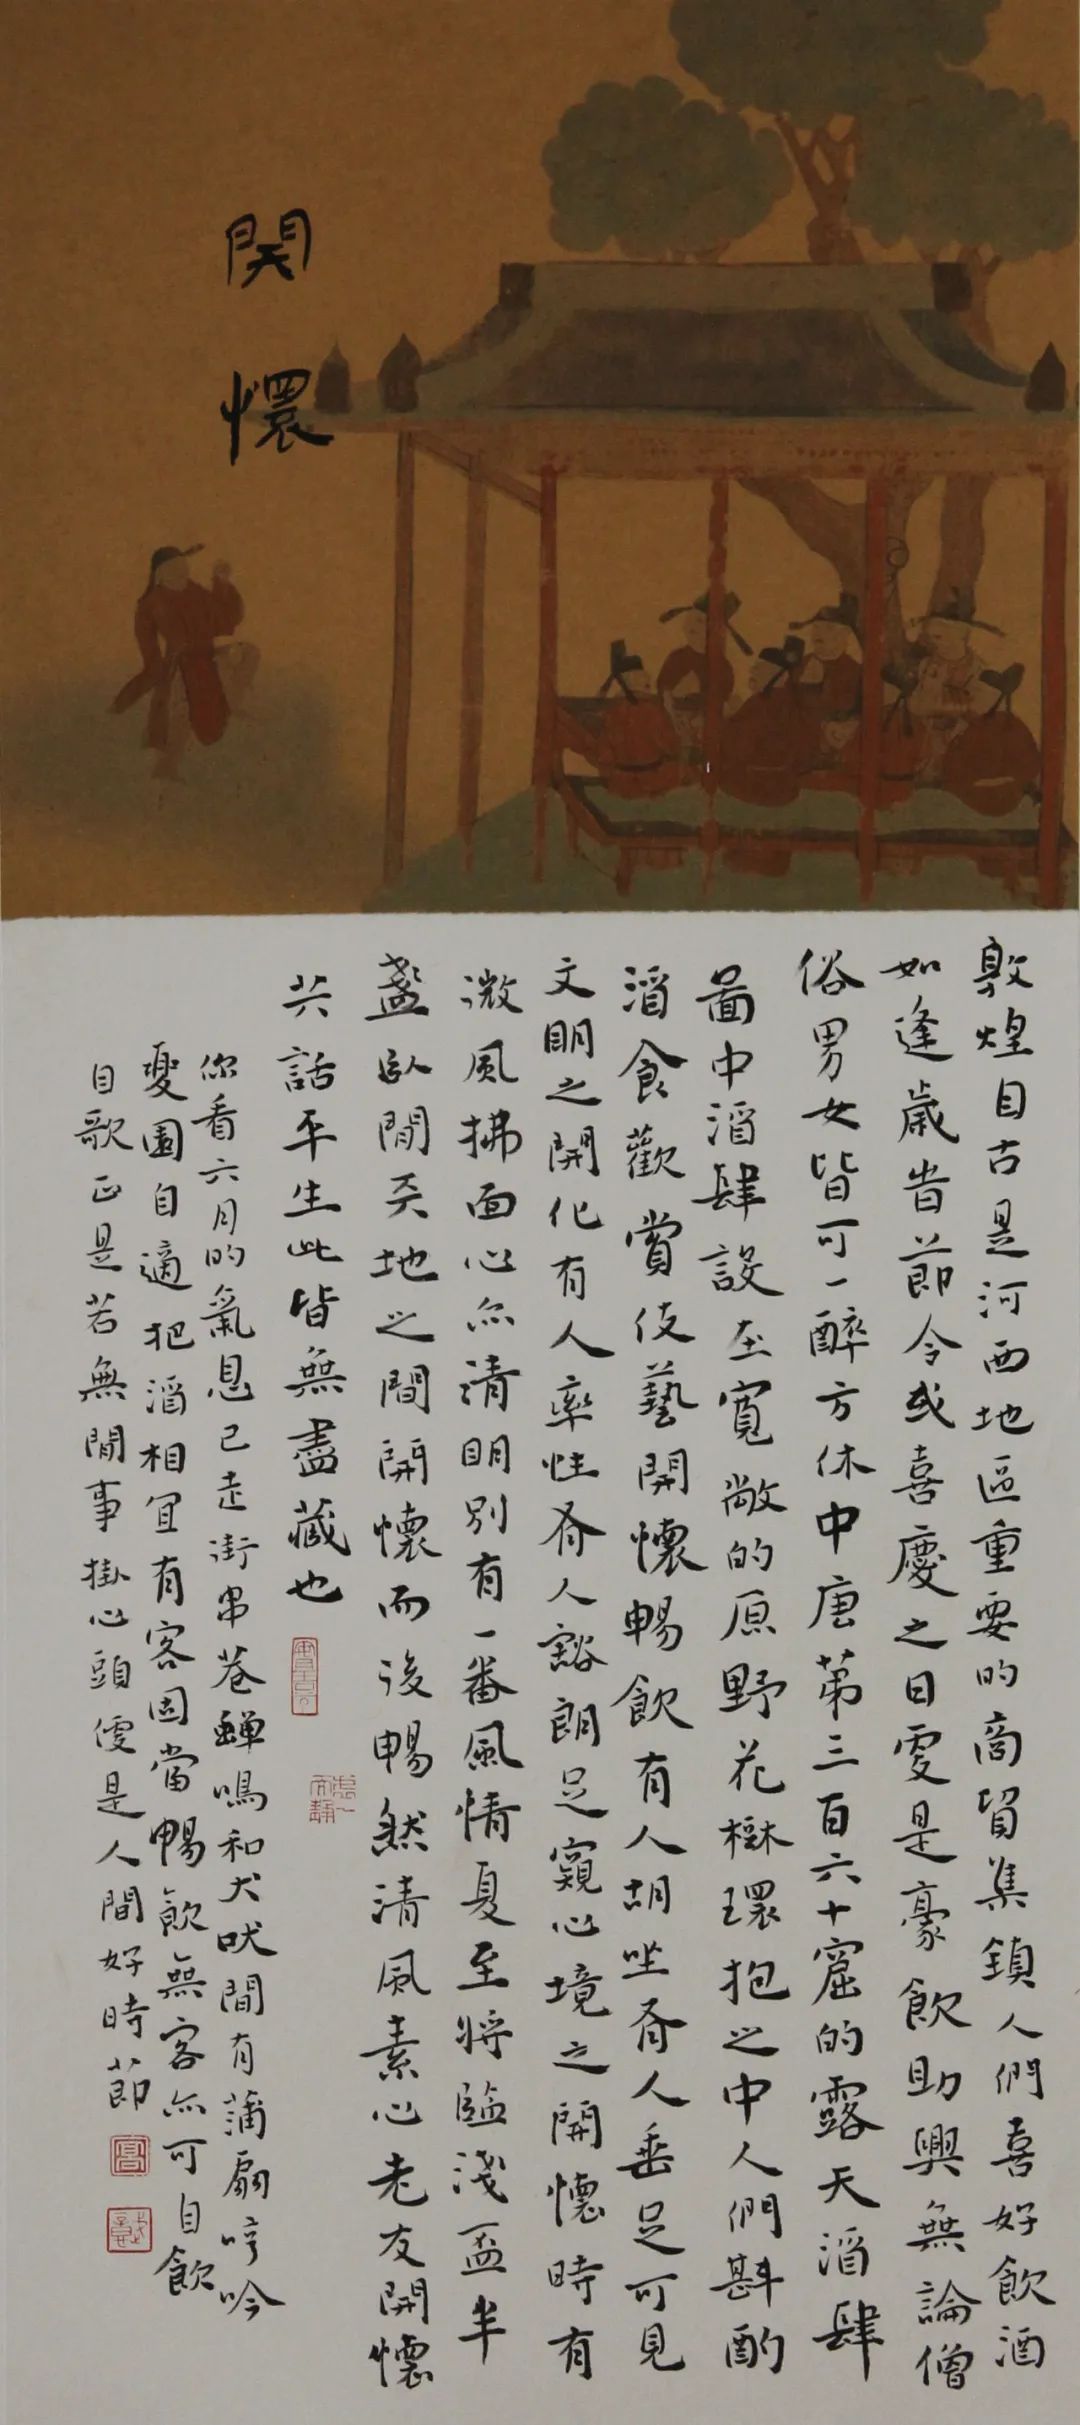 開懷
敦煌自古是河西地區重要的商貿集鎮人們喜好飲酒
如逢歲時節令或喜慶之日更是豪飲助興無論僧
俗男女皆可一醉方休中唐第三百六十窟的露天酒肆
圖中酒肆設在寬敞的原野花樹環抱之中人們斟酌
酒食歡賞伎藝開懷暢飲有人胡坐有人垂足可見
文明之開化有人率性有人豁朗足窺心境之開懷時有
微風拂面心亦清明別有一番風情夏至將臨淺盃半
盞臥閒天地之間開懷而後暢然清風素心老友開懷
共話平生此皆無盡藏也
你看六月的氣息已走街串巷蟬鳴和犬吠間有蒲扇哼吟
憂園自適把酒相宜有客固當暢飲無客亦可自飲
自歌正是若無閒事掛心頭便是人間好時節